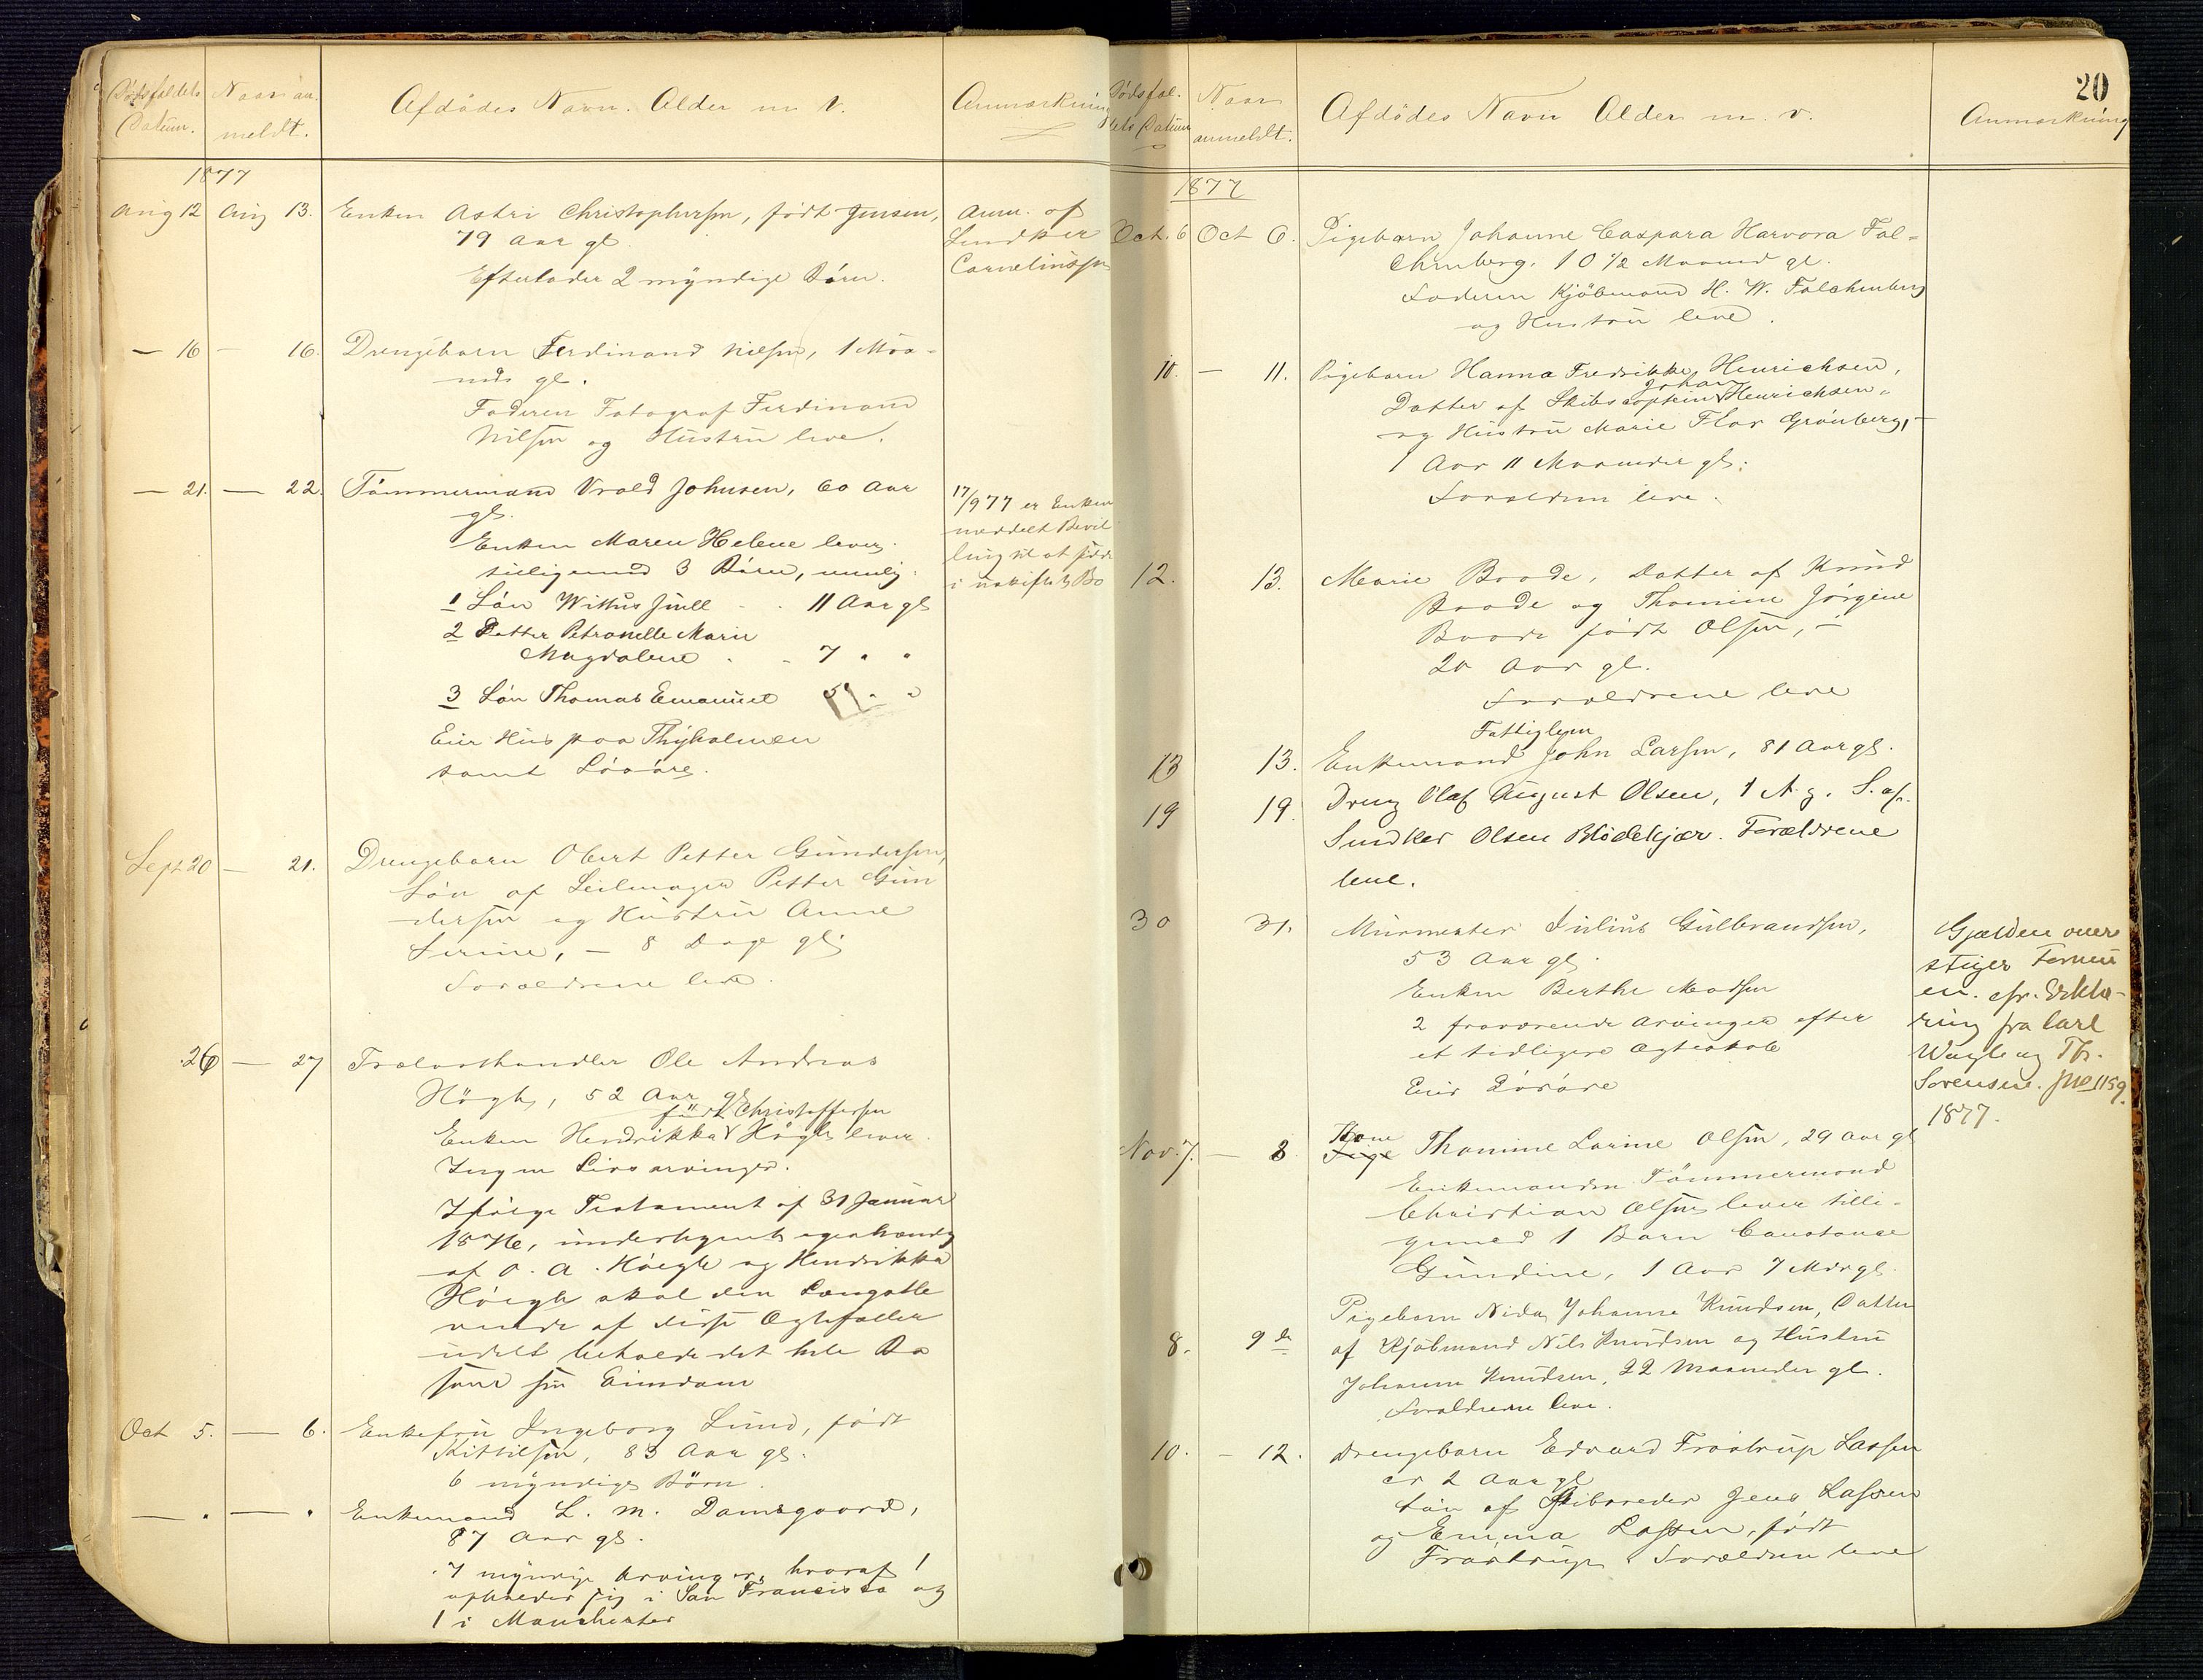 Dödsfaldets Datum.
Naar anmeldt.
Afdödes Navn. Alder m. v.
Anmærkning
1877
Aug 12 Aug 13. Enken Astri Christophersen, født Jensen,
79 Aar gl.
Efterlader 2 myndige Börn.
Anm. af
Corneliussen
— 16 — 16. Drengebarn Ferdinand Nilsen, 1 Maa-
neds gl.
Faderen Fotograf Ferdinand
Nilsen og Hustru leve.
— 21. — 22. Tömmermand Vrold Johnsen, 60 Aar
gl.
Enken Maren Helene lever
tilligemed 3 Börn, nemlig:
1 Sön Wittus Juell - . 11 Aar gl
2 Datter Petronelle Marie
Magdalene . - 7 " "
3 Sön Thomas Emanuel " "
Eier Hus paa Thyholmen
samt Lösöre.
17/9 77 er Enken
meddelt Bevil
ling til at sidde
i uskiftet Bo
Sept 20 — 21. Drengebarn Obert Petter Gundersen,
Sön af Seilmager Petter Gun
dersen og Hustru Anne
Serine, — 8 Dage gl.
Forældrene leve.
26 — 27 Trælasthandler Ole Andreas
Högh, 52 Aar gl
født Christoffersen
Enken Hendrikka Högh lever.
Ingen Livsarvinger.
Ifölge Testament af 31 Januar
1876, underskrevet egenhændig
af O. A. Höegh og Hendrikka
Höegh skal den Længstle
vende af disse Ægtefæller
udelt beholde det hele Bo
som sin Eiendom
Oct 5. — 6. Enkefru Ingeborg Lund, født
Kittilsen, 83 Aar gl.
6 myndige Börn.
— " — " Enkemand L. M. Damsgaard,
87 Aar gl.
7 myndige Arvinger, hvoraf 1
opholder sig i San Francisco og
1 i Manchester
20
Dödsfaldets Datum
Naar anmeldt.
Afdödes Navn Alder m. v.
Anmærkning
1877
Oct. 6 Oct 6. Pigebarn Johanne Caspara Harvora Fal-
chenberg, 10 1/2 Maaned gl.
Faderen Kjöbmand H. W. Falchenberg
og Hustru leve.
10. — 11. Pigebarn Hanna Fredrikke Henrichsen,
Johan
Datter af Skibscaptein Henrichsen
og Hustru Marie Flor Grönberg, —
1 Aar 11 Maaneder gl.
Forældren leve.
12. 13. Marie Boode, Datter af Knud
Boode og Thomine Jörgine
Boode født Olsen, —
20 Aar gl.
Forældrene leve
Fattiglem
13 13. Enkemand John Larsen, 81 Aar gl.
19 19. Dreng Olaf August Olsen, 1 A. g. S. af.
Snedker Olsen Blödekjær. Forældrene
leve.
30 31. Murmester Julius Gulbrandsen,
53 Aar gl.
Enken Berthe Madsen
2 fraværende Arvinger efter
et tidligere Ægteskab
Eier Lösöre
Gjælden over
stiger Formu
en. cfr. Erklæ-
ring fra Carl
Wayle og Th.
Sørensen. Jno 1159.
1877.
Kone
Nov. 7. — 8 Pige Thomine Larine Olsen, 29 Aar gl
Enkemanden Tömmermand
Christian Olsen lever tilli-
gemed 1 Barn Constance
Gundine, 1 Aar 7 Mdr gl.
Pigebarn Nida Johanne Knudsen, Datter
8. 9de af Kjöbmand Nils Knudsen og Hustru
Johanne Knudsen, 22 Maaneder gl.
Forældrene leve.
10. — 12. Drengebarn Edvard Fraatrup Lassen
er 2 Aar gl
Sön af Skibsreder Jens Lassen
og Emma Lassen, født
Fraatrup. Forældren leve